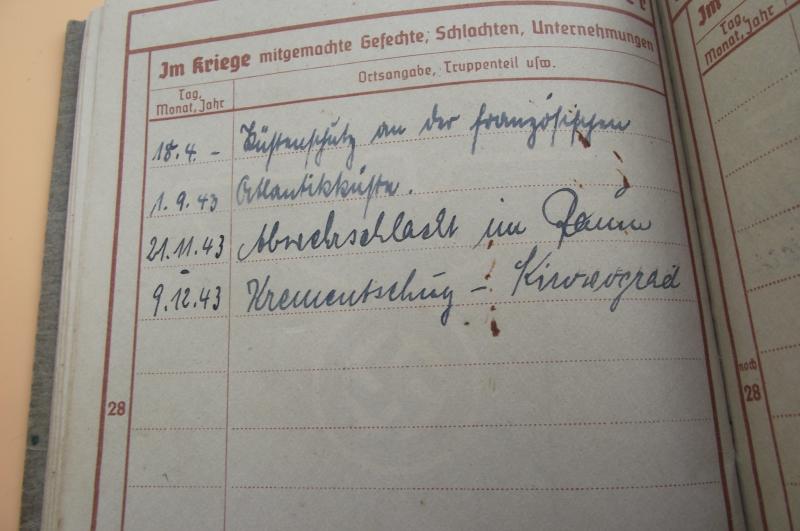 Im Kriege mitgemachte Gefechte, Schlachten, Unternehmungen
Tag, Monat, Jahr
Ortsangabe, Truppenteil usw.
18.4. – Küstenschutz an der französischen
1.9.43 Atlantikküste.
21.11.43 Abwehrschlacht im Raum
– 9.12.43 Krementschug – Kirowograd
28
Im
Tag,
Monat, Jahr
noch
28